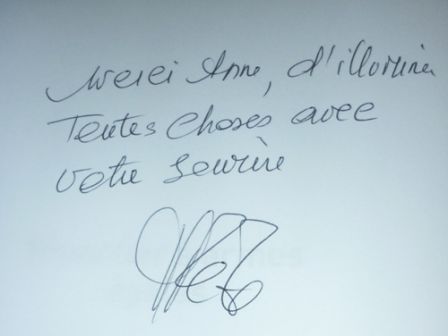 Merci Anne, d'illuminer
Toutes choses avec
votre sourire